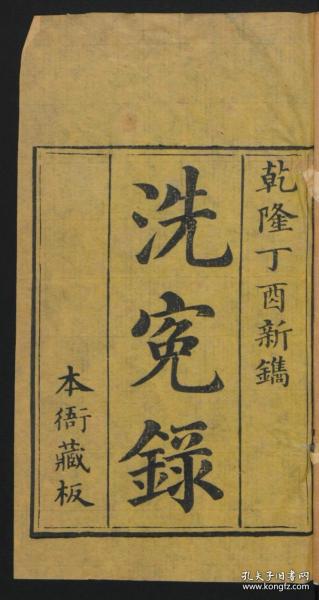 乾隆丁酉新鐫
洗冤錄
本衙藏板
孔夫子旧书网
www.kongfz.com